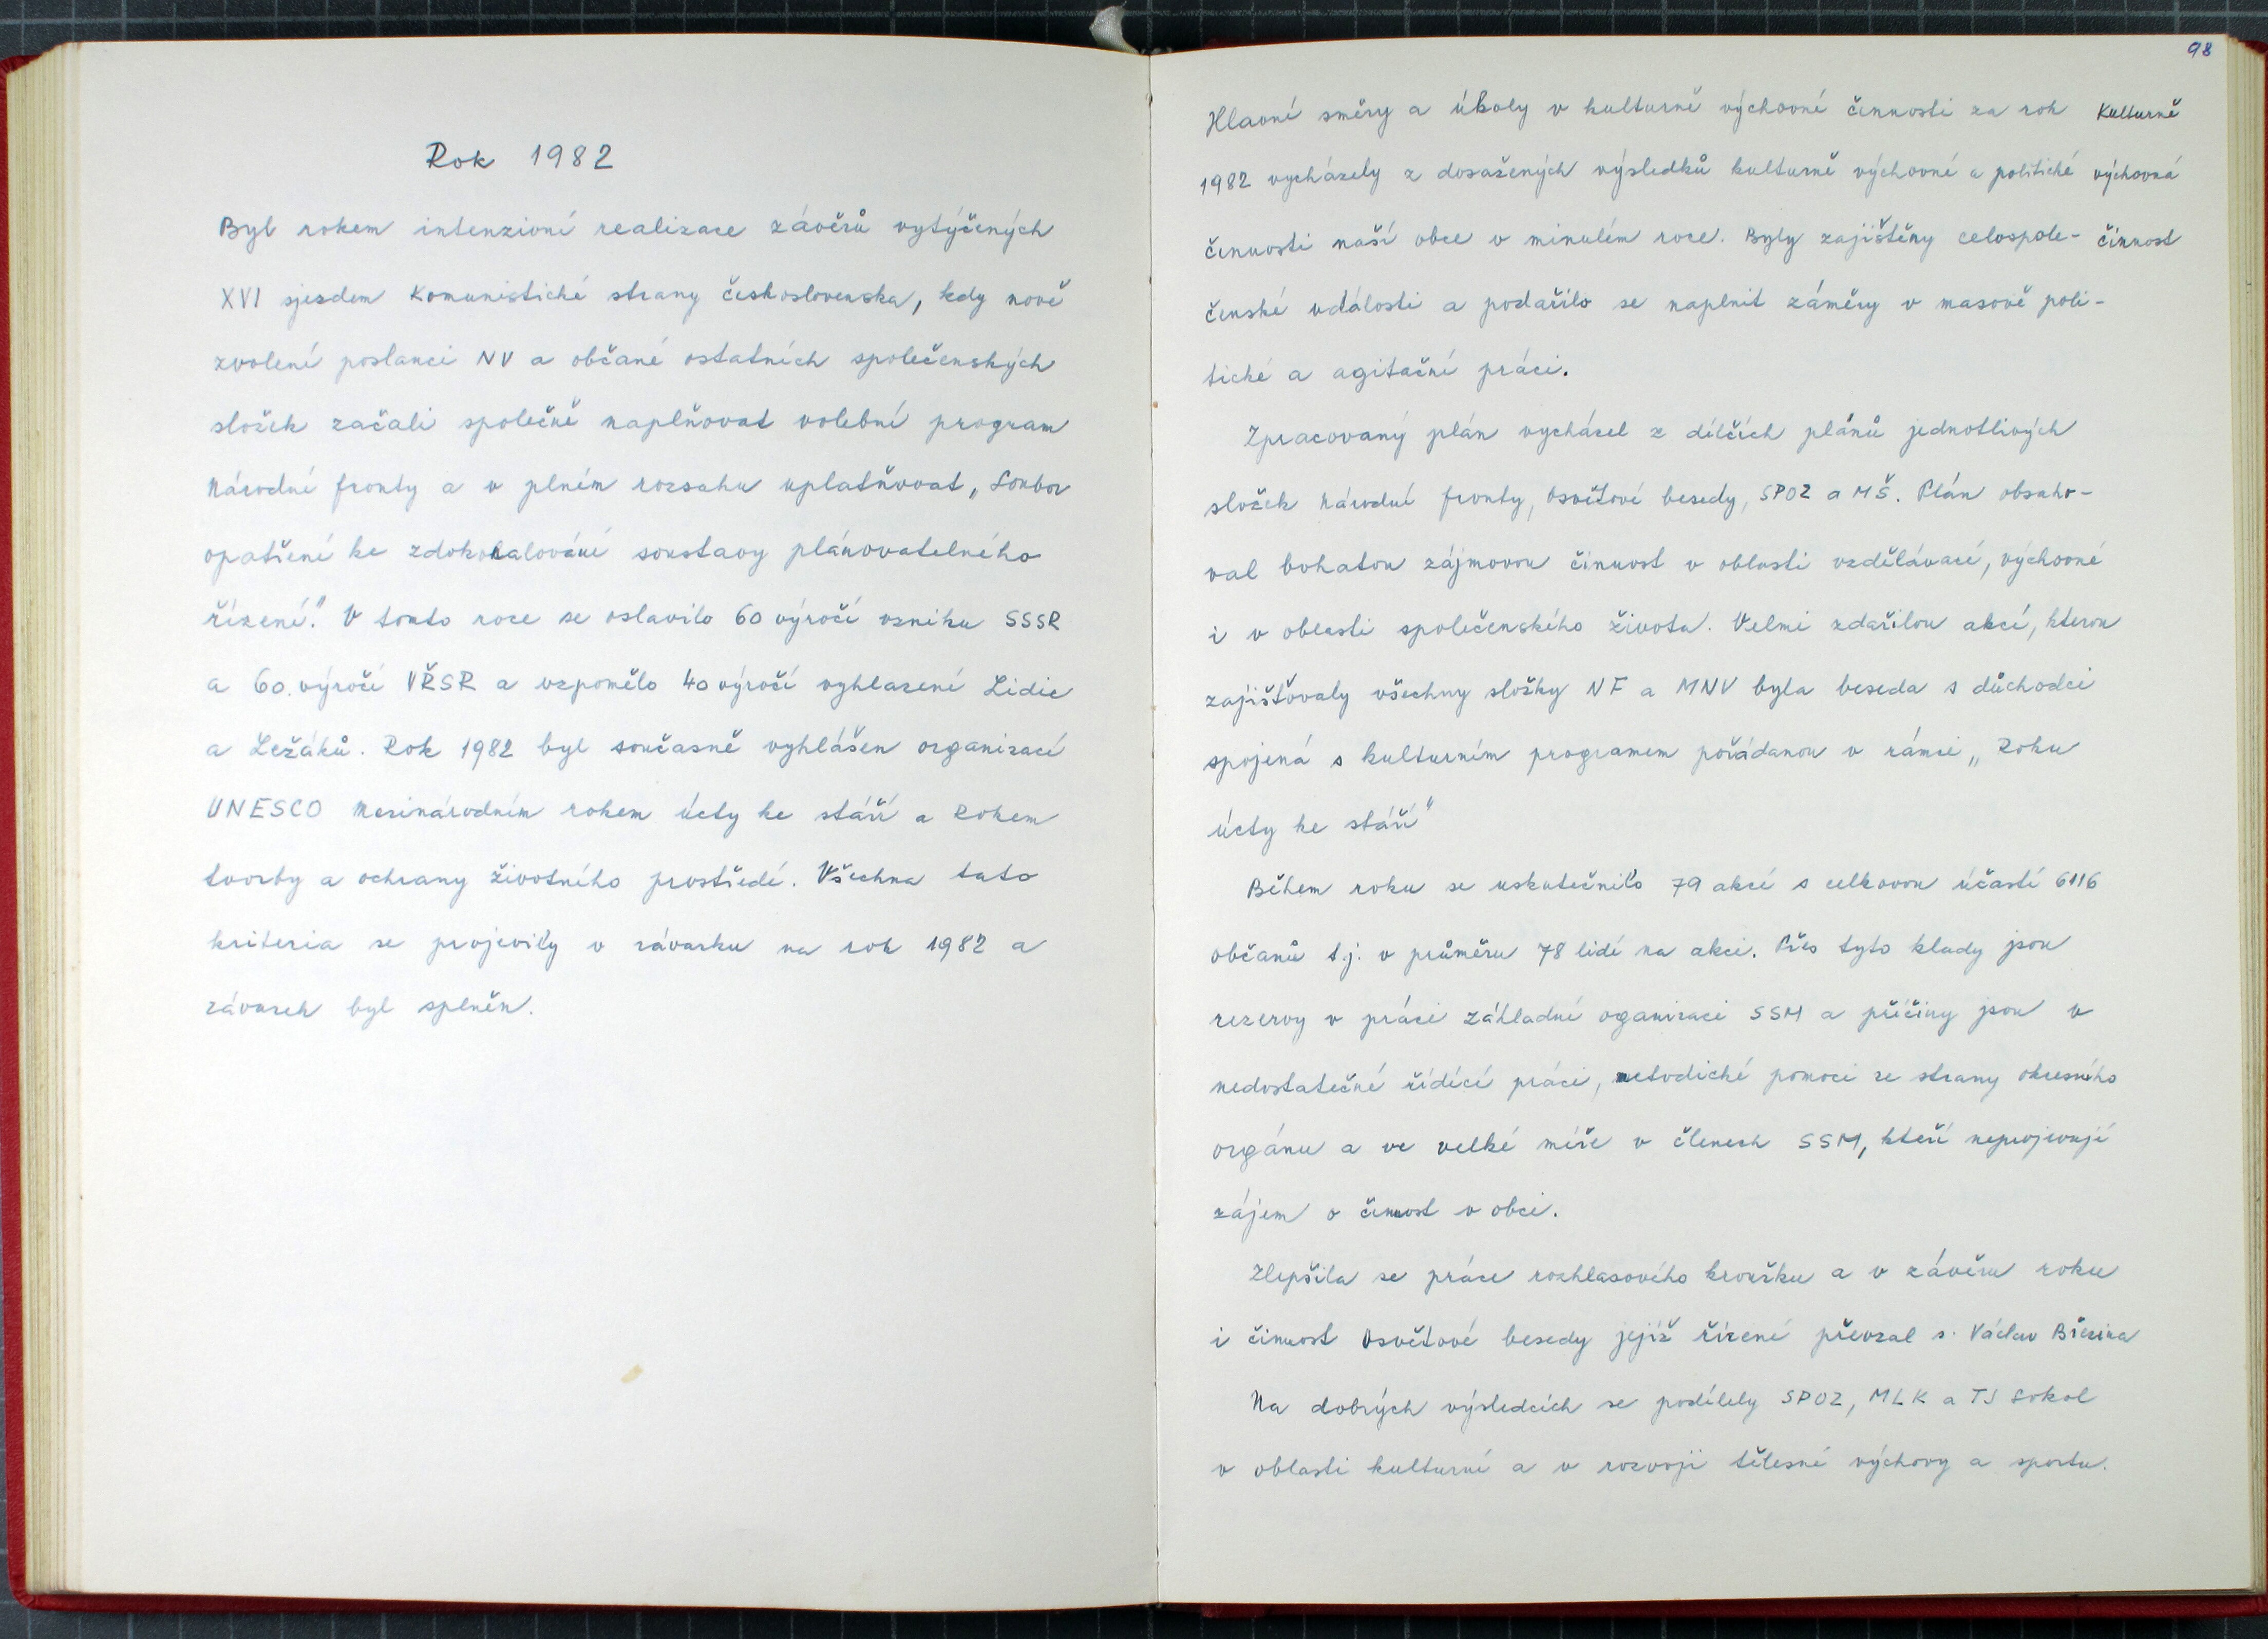 Rok 1982
Byl rokem intenzivní realizace závěrů vytýčených
XVI sjezdem Komunistické strany československa, kdy nově
zvolení poslanci NV a občané ostatních společenských
složek začali společně naplňovat volební program
Národní fronty a v plném rozsahu uplatňovat „Soubor
opatření ke zdokonalování soustavy plánovatelného
řízení." V tomto roce se oslavilo 60 výročí vzniku SSSR
a 60. výročí VŘSR a vzpomělo 40 výročí vyhlazení Lidic
a Ležáků. Rok 1982 byl současně vyhlášen organizací
UNESCO Mezinárodním rokem úcty ke stáří a Rokem
tvorby a ochrany životního prostředí. Všechna tato
kriteria se projevily v závazku na rok 1982 a
závazek byl splněn.
98
Hlavní směry a úkoly v kulturně výchovné činnosti za rok
1982 vycházely z dosažených výsledků kulturně výchovné a politické
činnosti naší obce v minulém roce. Byly zajištěny celospole-
čenské události a podařilo se naplnit záměry v masově poli-
tické a agitační práci.
Kulturně
výchovná
činnost
Zpracovaný plán vycházel z dílčích plánů jednotlivých
složek Národní fronty, Osvětové besedy, SPOZ a MŠ. Plán obsaho-
val bohatou zájmovou činnost v oblasti vzdělávací, výchovné
i v oblasti společenského života. Velmi zdařilou akcí, kterou
zajišťovaly všechny složky NF a MNV byla beseda s důchodci
spojená s kulturním programem pořádanou v rámci „Roku
úcty ke stáří"
Během roku se uskutečnilo 79 akcí s celkovou účastí 6116
občanů t.j. v průměru 78 lidí na akci. Přes tyto klady jsou
rezervy v práci základní oganizaci SSM a příčiny jsou v
nedostatečné řídící práci, metodické pomoci ze strany okresního
orgánu a ve velké míře v členech SSM, kteří neprojevují
zájem o činnost v obci.
Zlepšila se práce rozhlasového kroužku a v závěru roku
i činnost Osvětové besedy jejíž řízení převzal s. Václav Březina
Na dobrých výsledcích se podílely SPOZ, MLK a TJ Sokol
v oblasti kulturní a v rozvoji tělesné výchovy a sportu.